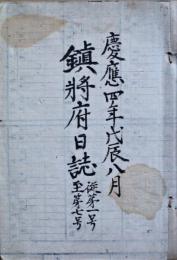 慶應四年戊辰八月
鎮将府日誌
従第一号
至第七号